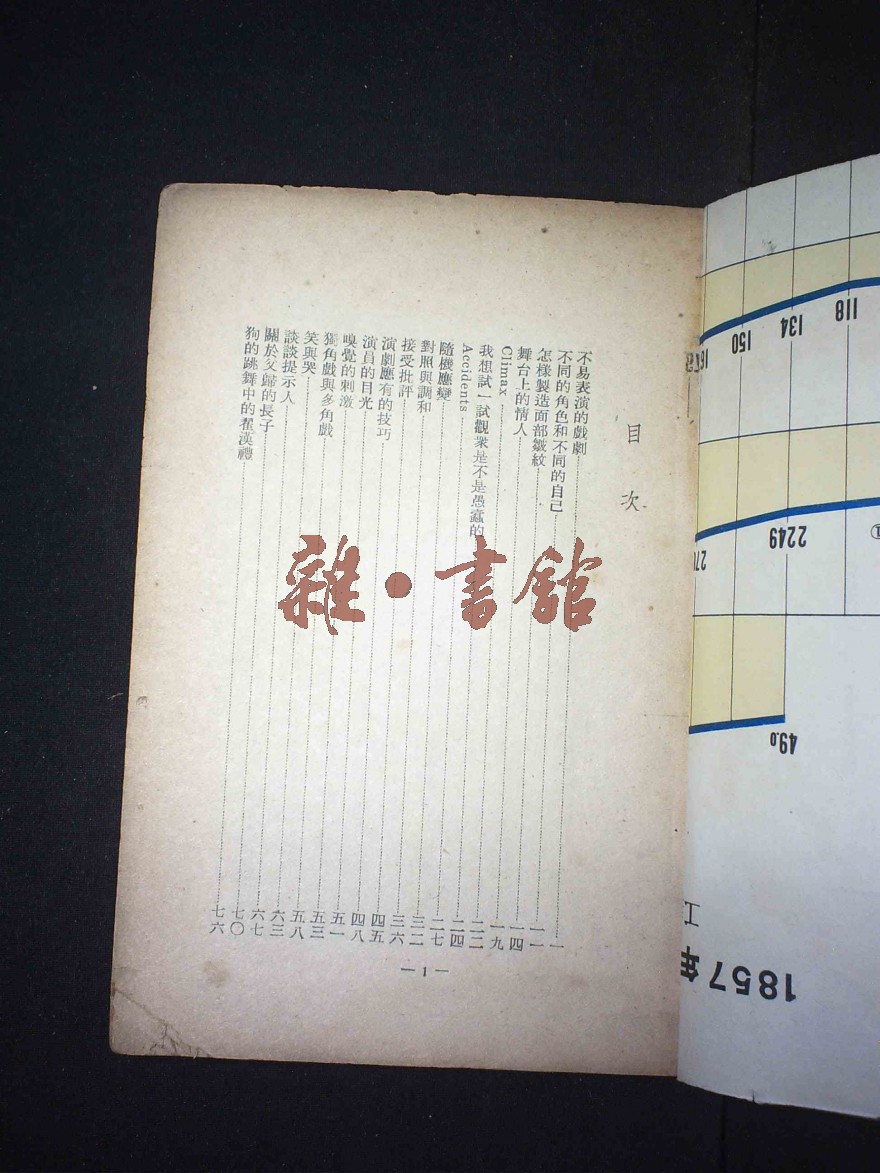 目次
不易表演的戲劇……一
不同的角色和不同的自己……一一
怎樣製造面部皺紋……一四
舞台上的情人……一九
Climax……二二
我想試一試觀衆是不是愚蠢的……二四
Accidents……二七
隨機應變……三二
對照與調和……三六
接受批評……四五
演劇應有的技巧……四八
演員的目光……五一
嗅覺的刺激……五三
獨角戲與多角戲……五八
笑與哭……六三
談談提示人……六七
關於父歸的長子……七〇
狗的跳舞中的翟漢禮……七六
—1—
雜·書館
1857年
49.0
2249
118
134
150